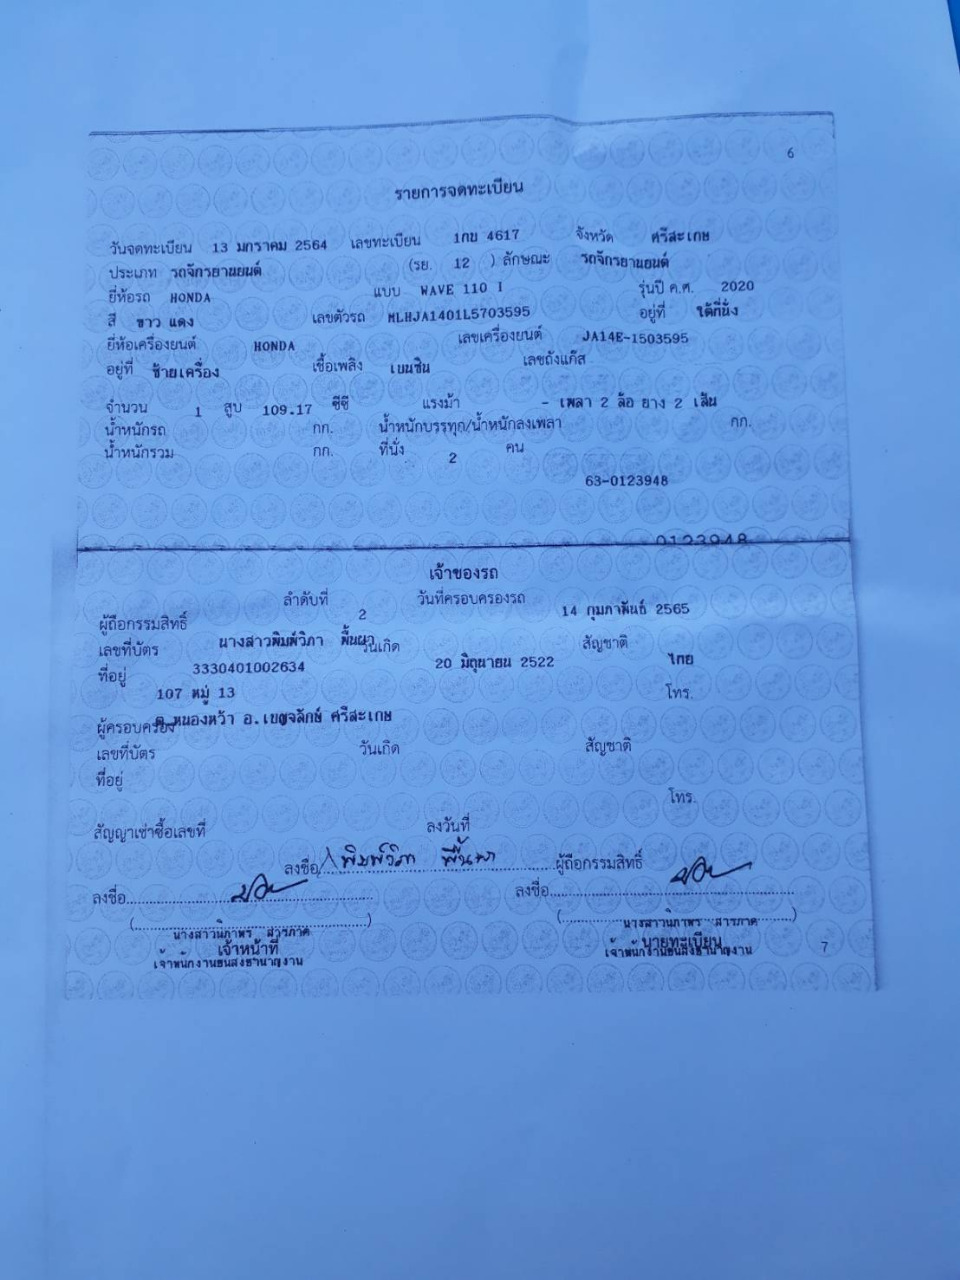 6
รายการจดทะเบียน
วันจดทะเบียน 13 มกราคม 2564 เลขทะเบียน 1กบ 4617 จังหวัด ศรีสะเกษ
ประเภท รถจักรยานยนต์ (รย. 12 ) ลักษณะ รถจักรยานยนต์
ยี่ห้อรถ HONDA แบบ WAVE 110 I รุ่นปี ค.ศ. 2020
สี ขาว แดง เลขตัวรถ MLHJA1401L5703595 อยู่ที่ ใต้ที่นั่ง
ยี่ห้อเครื่องยนต์ HONDA เลขเครื่องยนต์ JA14E-1503595
อยู่ที่ ซ้ายเครื่อง เชื้อเพลิง เบนซิน เลขถังแก๊ส
จำนวน 1 สูบ 109.17 ซีซี แรงม้า - เพลา 2 ล้อ ยาง 2 เส้น
น้ำหนักรถ กก. น้ำหนักบรรทุก/น้ำหนักลงเพลา กก.
น้ำหนักรวม กก. ที่นั่ง 2 คน
63-0123948
0123948
เจ้าของรถ
ลำดับที่ 2 วันที่ครอบครองรถ 14 กุมภาพันธ์ 2565
ผู้ถือกรรมสิทธิ์ นางสาวพิมพ์วิภา พื้นผา
เลขที่บัตร 3330401002634 วันเกิด 20 มิถุนายน 2522 สัญชาติ ไทย
ที่อยู่ 107 หมู่ 13 โทร.
ต.หนองหว้า อ.เบญจลักษ์ ศรีสะเกษ
ผู้ครอบครอง
เลขที่บัตร วันเกิด สัญชาติ
ที่อยู่
โทร.
สัญญาเช่าซื้อเลขที่ ลงวันที่
ลงชื่อ พิมพ์วิภา พื้นผา ผู้ถือกรรมสิทธิ์
ลงชื่อ ลงชื่อ
( ) ( )
นางสาวนิภาพร สารภาค นางสาวนิภาพร สารภาค
เจ้าหน้าที่ นายทะเบียน 7
เจ้าพนักงานขนส่งชำนาญงาน เจ้าพนักงานขนส่งชำนาญงาน